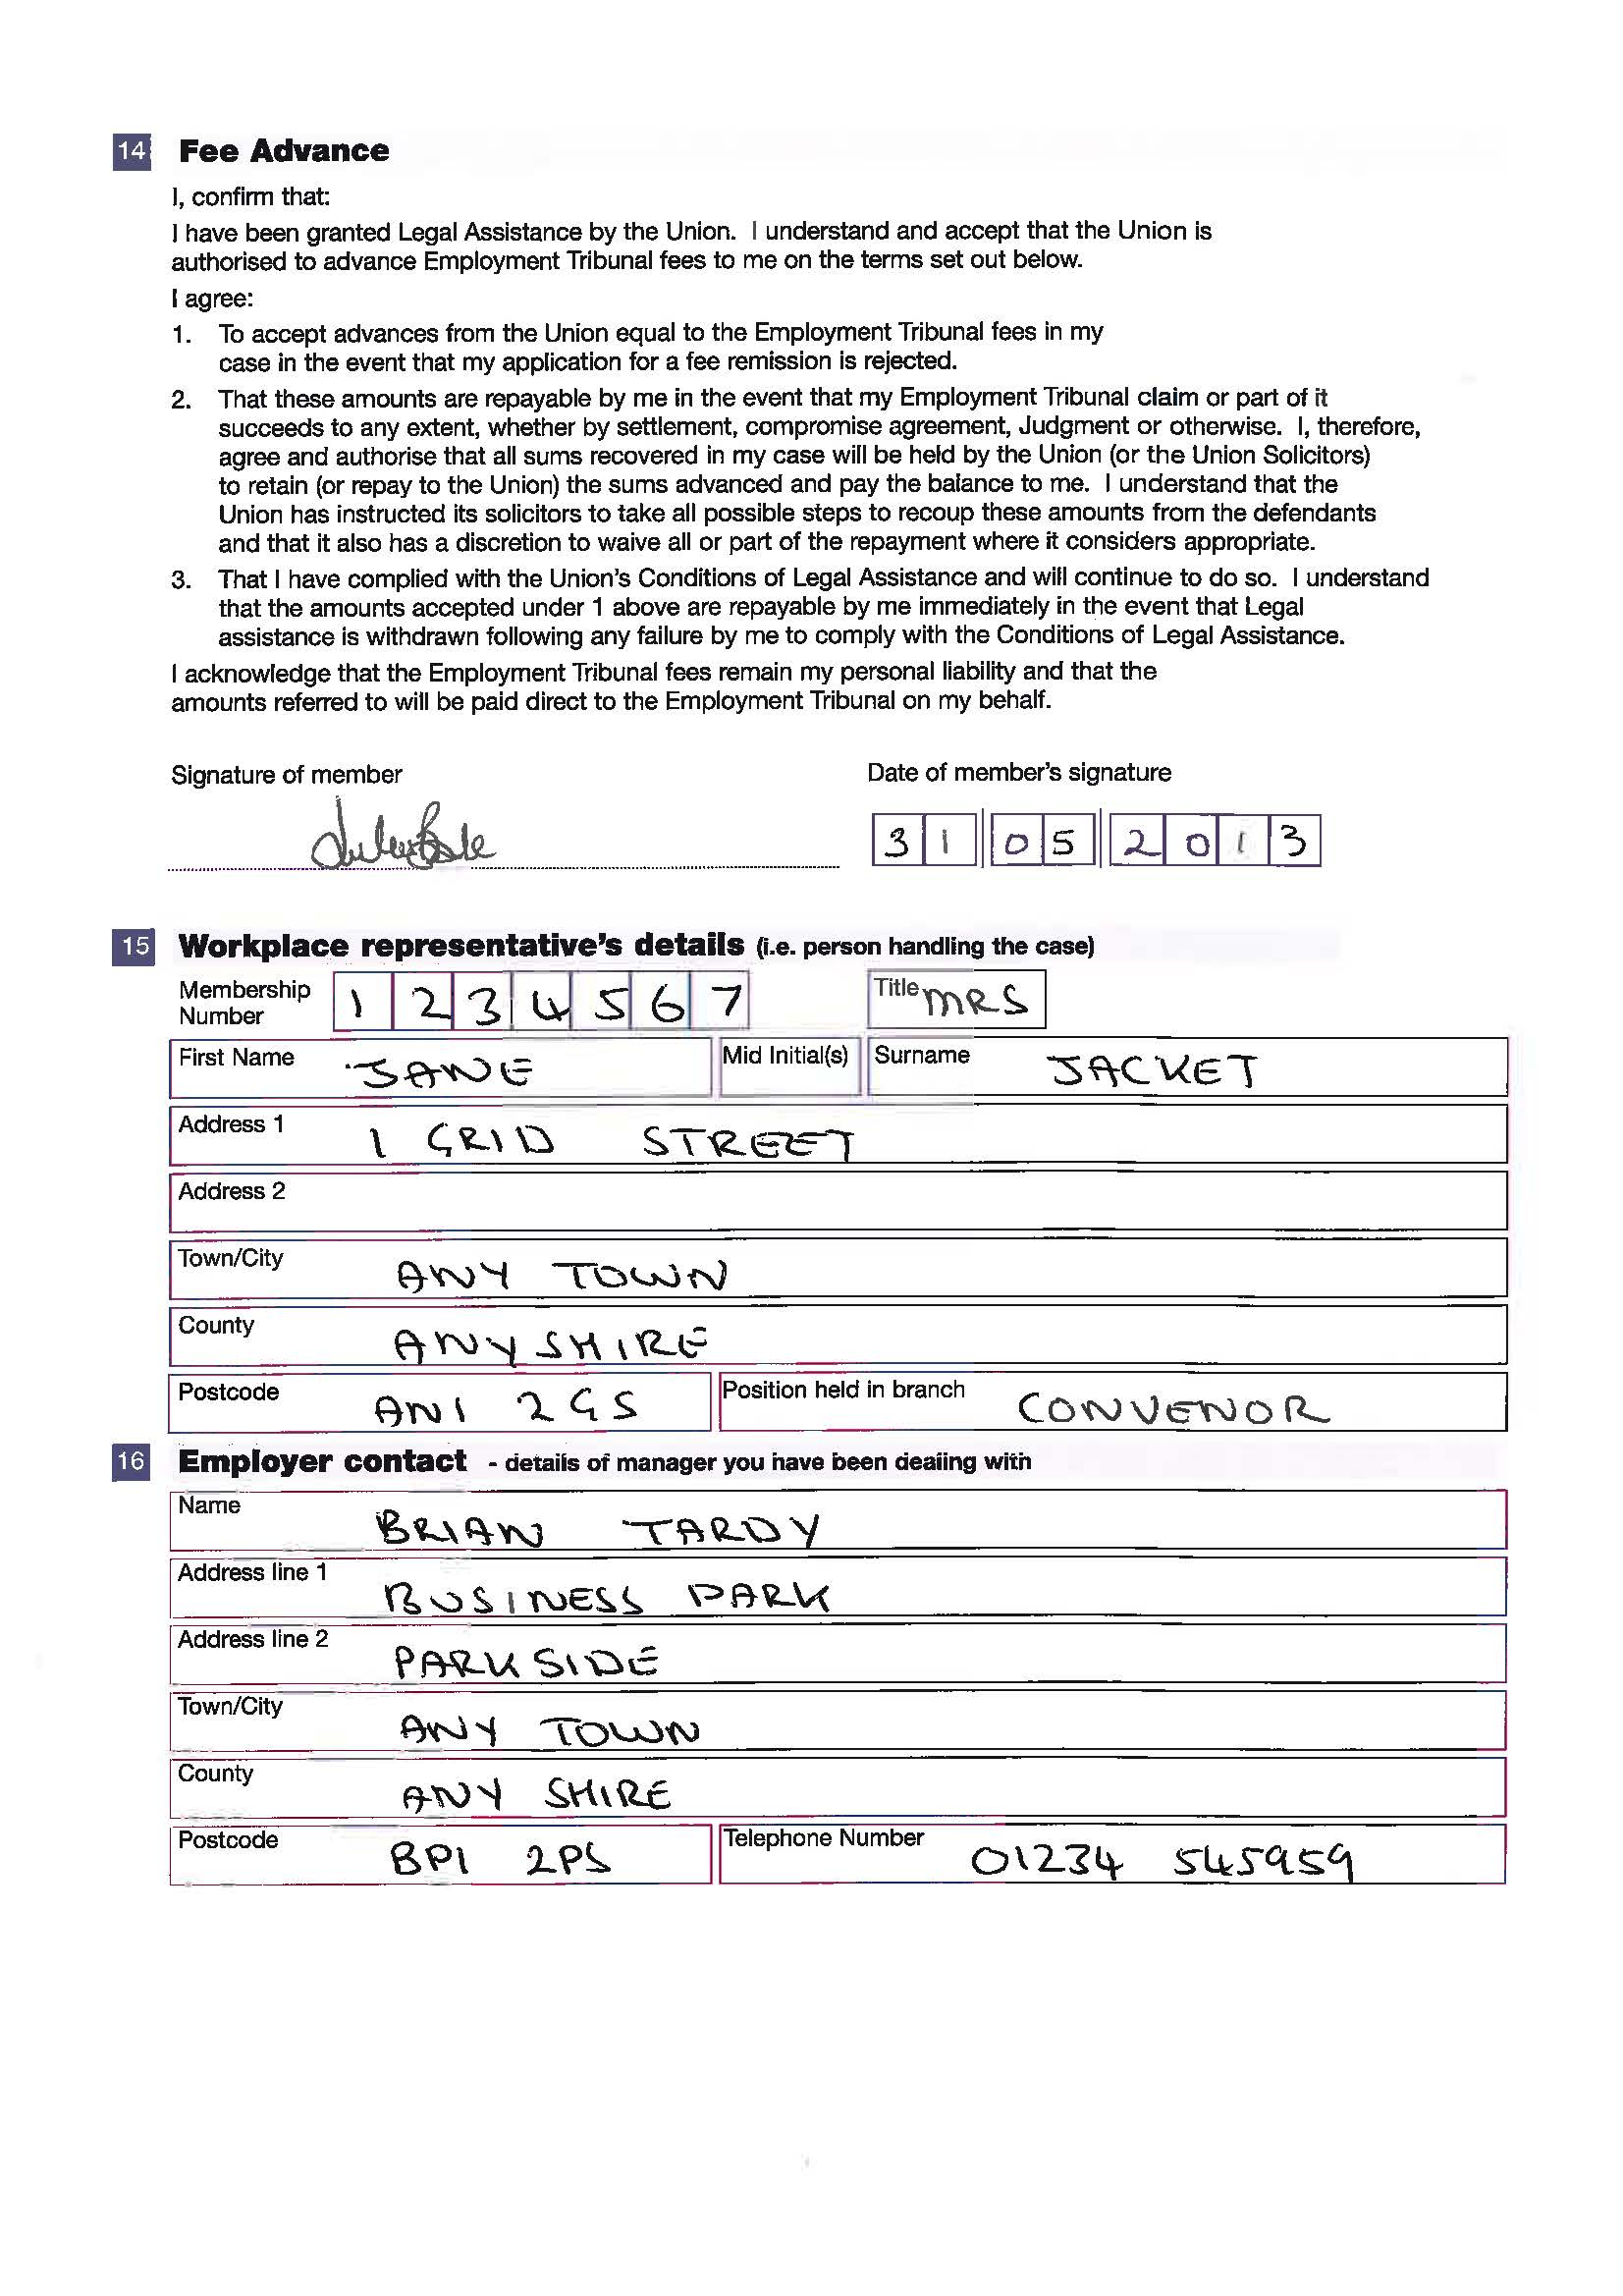 14 Fee Advance
I, confirm that:
I have been granted Legal Assistance by the Union. I understand and accept that the Union is
authorised to advance Employment Tribunal fees to me on the terms set out below.
I agree:
1. To accept advances from the Union equal to the Employment Tribunal fees in my
case in the event that my application for a fee remission is rejected.
2. That these amounts are repayable by me in the event that my Employment Tribunal claim or part of it
succeeds to any extent, whether by settlement, compromise agreement, Judgment or otherwise. I, therefore,
agree and authorise that all sums recovered in my case will be held by the Union (or the Union Solicitors)
to retain (or repay to the Union) the sums advanced and pay the balance to me. I understand that the
Union has instructed its solicitors to take all possible steps to recoup these amounts from the defendants
and that it also has a discretion to waive all or part of the repayment where it considers appropriate.
3. That I have complied with the Union's Conditions of Legal Assistance and will continue to do so. I understand
that the amounts accepted under 1 above are repayable by me immediately in the event that Legal
assistance is withdrawn following any failure by me to comply with the Conditions of Legal Assistance.
I acknowledge that the Employment Tribunal fees remain my personal liability and that the
amounts referred to will be paid direct to the Employment Tribunal on my behalf.
Signature of member Date of member's signature
31 05 2013
15 Workplace representative's details (i.e. person handling the case)
Membership Number 1234567 Title MRS
First Name JANE Mid Initial(s) Surname JACKET
Address 1 1 GRID STREET
Address 2
Town/City ANY TOWN
County ANYSHIRE
Postcode AN1 2GS Position held in branch CONVENOR
16 Employer contact - details of manager you have been dealing with
Name BRIAN TARDY
Address line 1 BUSINESS PARK
Address line 2 PARKSIDE
Town/City ANY TOWN
County ANY SHIRE
Postcode BP1 2PS Telephone Number 01234 545959